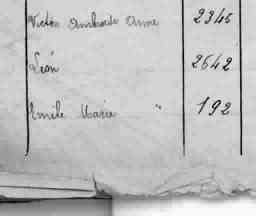 Victor Ambroise Anne 2346
Léon 2642
Emile Marie " 192